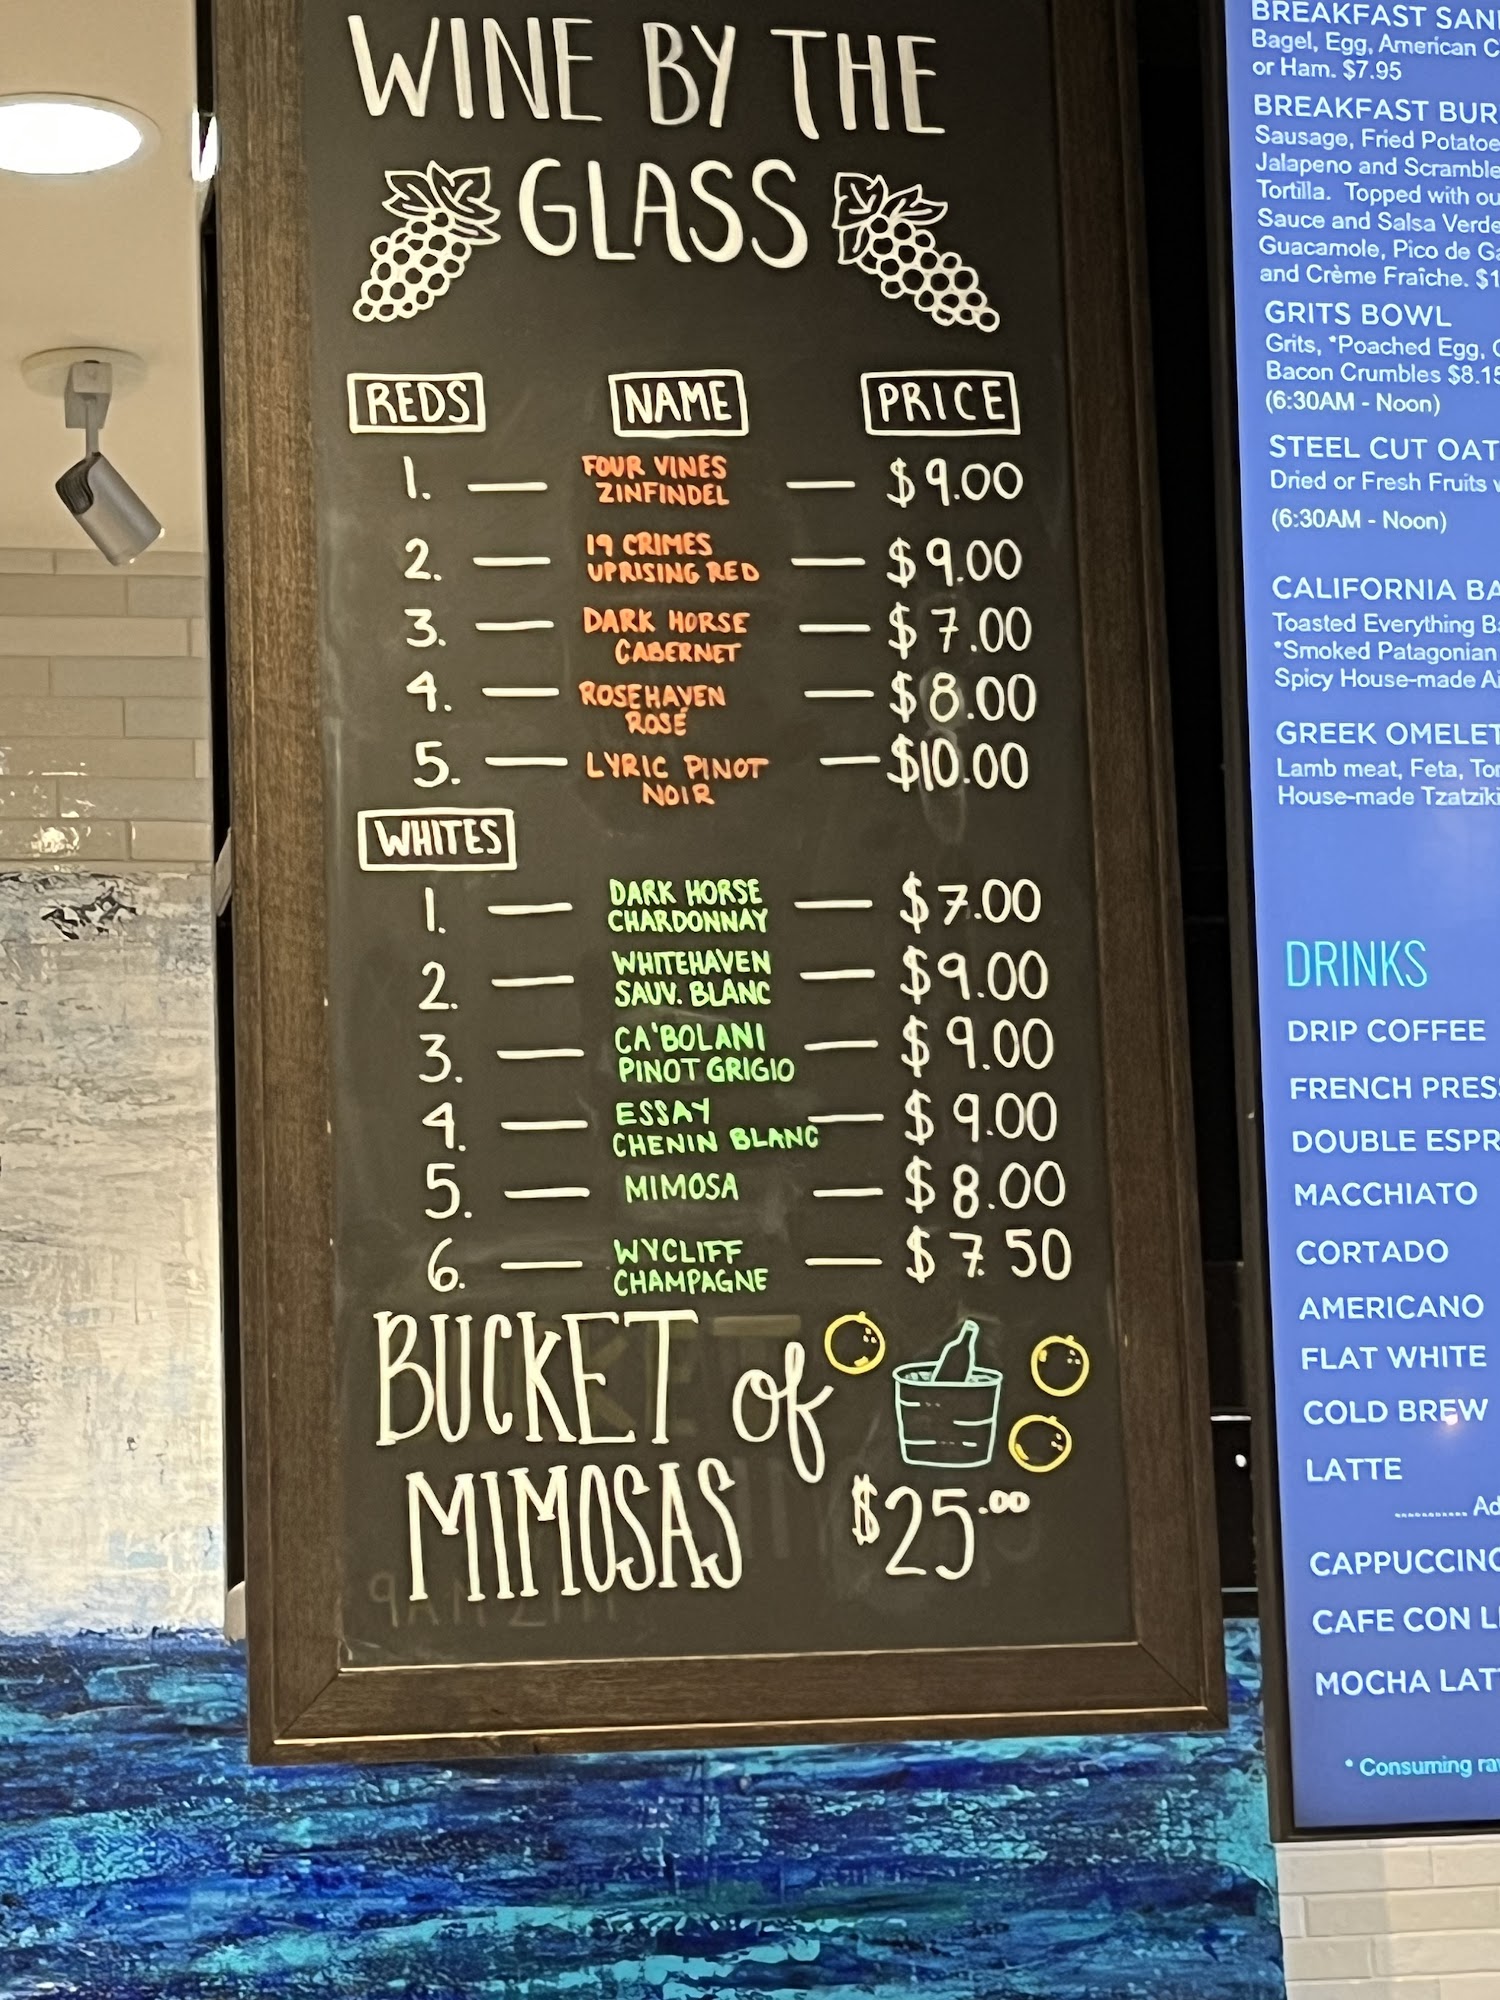 WINE BY THE
GLASS
REDS NAME PRICE
1. — FOUR VINES — $9.00
ZINFINDEL
2. — 19 CRIMES — $9.00
UPRISING RED
3. — DARK HORSE — $7.00
CABERNET
4. — ROSEHAVEN — $8.00
ROSÉ
5. — LYRIC PINOT — $10.00
NOIR
WHITES
1. — DARK HORSE — $7.00
CHARDONNAY
2. — WHITEHAVEN — $9.00
SAUV. BLANC
3. — CA'BOLANI — $9.00
PINOT GRIGIO
4. — ESSAY — $9.00
CHENIN BLANC
5. — MIMOSA — $8.00
6. — WYCLIFF — $7.50
CHAMPAGNE
BUCKET of
MIMOSAS $25.00
BREAKFAST
Bagel, Egg, American
or Ham. $7.95
BREAKFAST
Sausage, Fried
Jalapeno and
Tortilla. Topped with
Sauce and Salsa Verde
Guacamole, Pico de
and Crème Fraîche.
GRITS BOWL
Grits, *Poached Egg,
Bacon Crumbles $8.15
(6:30AM - Noon)
STEEL CUT
Dried or Fresh Fruits
(6:30AM - Noon)
CALIFORNIA
Toasted Everything
*Smoked Patagonian
Spicy House-made
GREEK
Lamb meat, Feta,
House-made Tzatziki
DRINKS
DRIP COFFEE
FRENCH
DOUBLE
MACCHIATO
CORTADO
AMERICANO
FLAT WHITE
COLD BREW
LATTE
CAPPUCCINO
CAFE CON
MOCHA
* Consuming